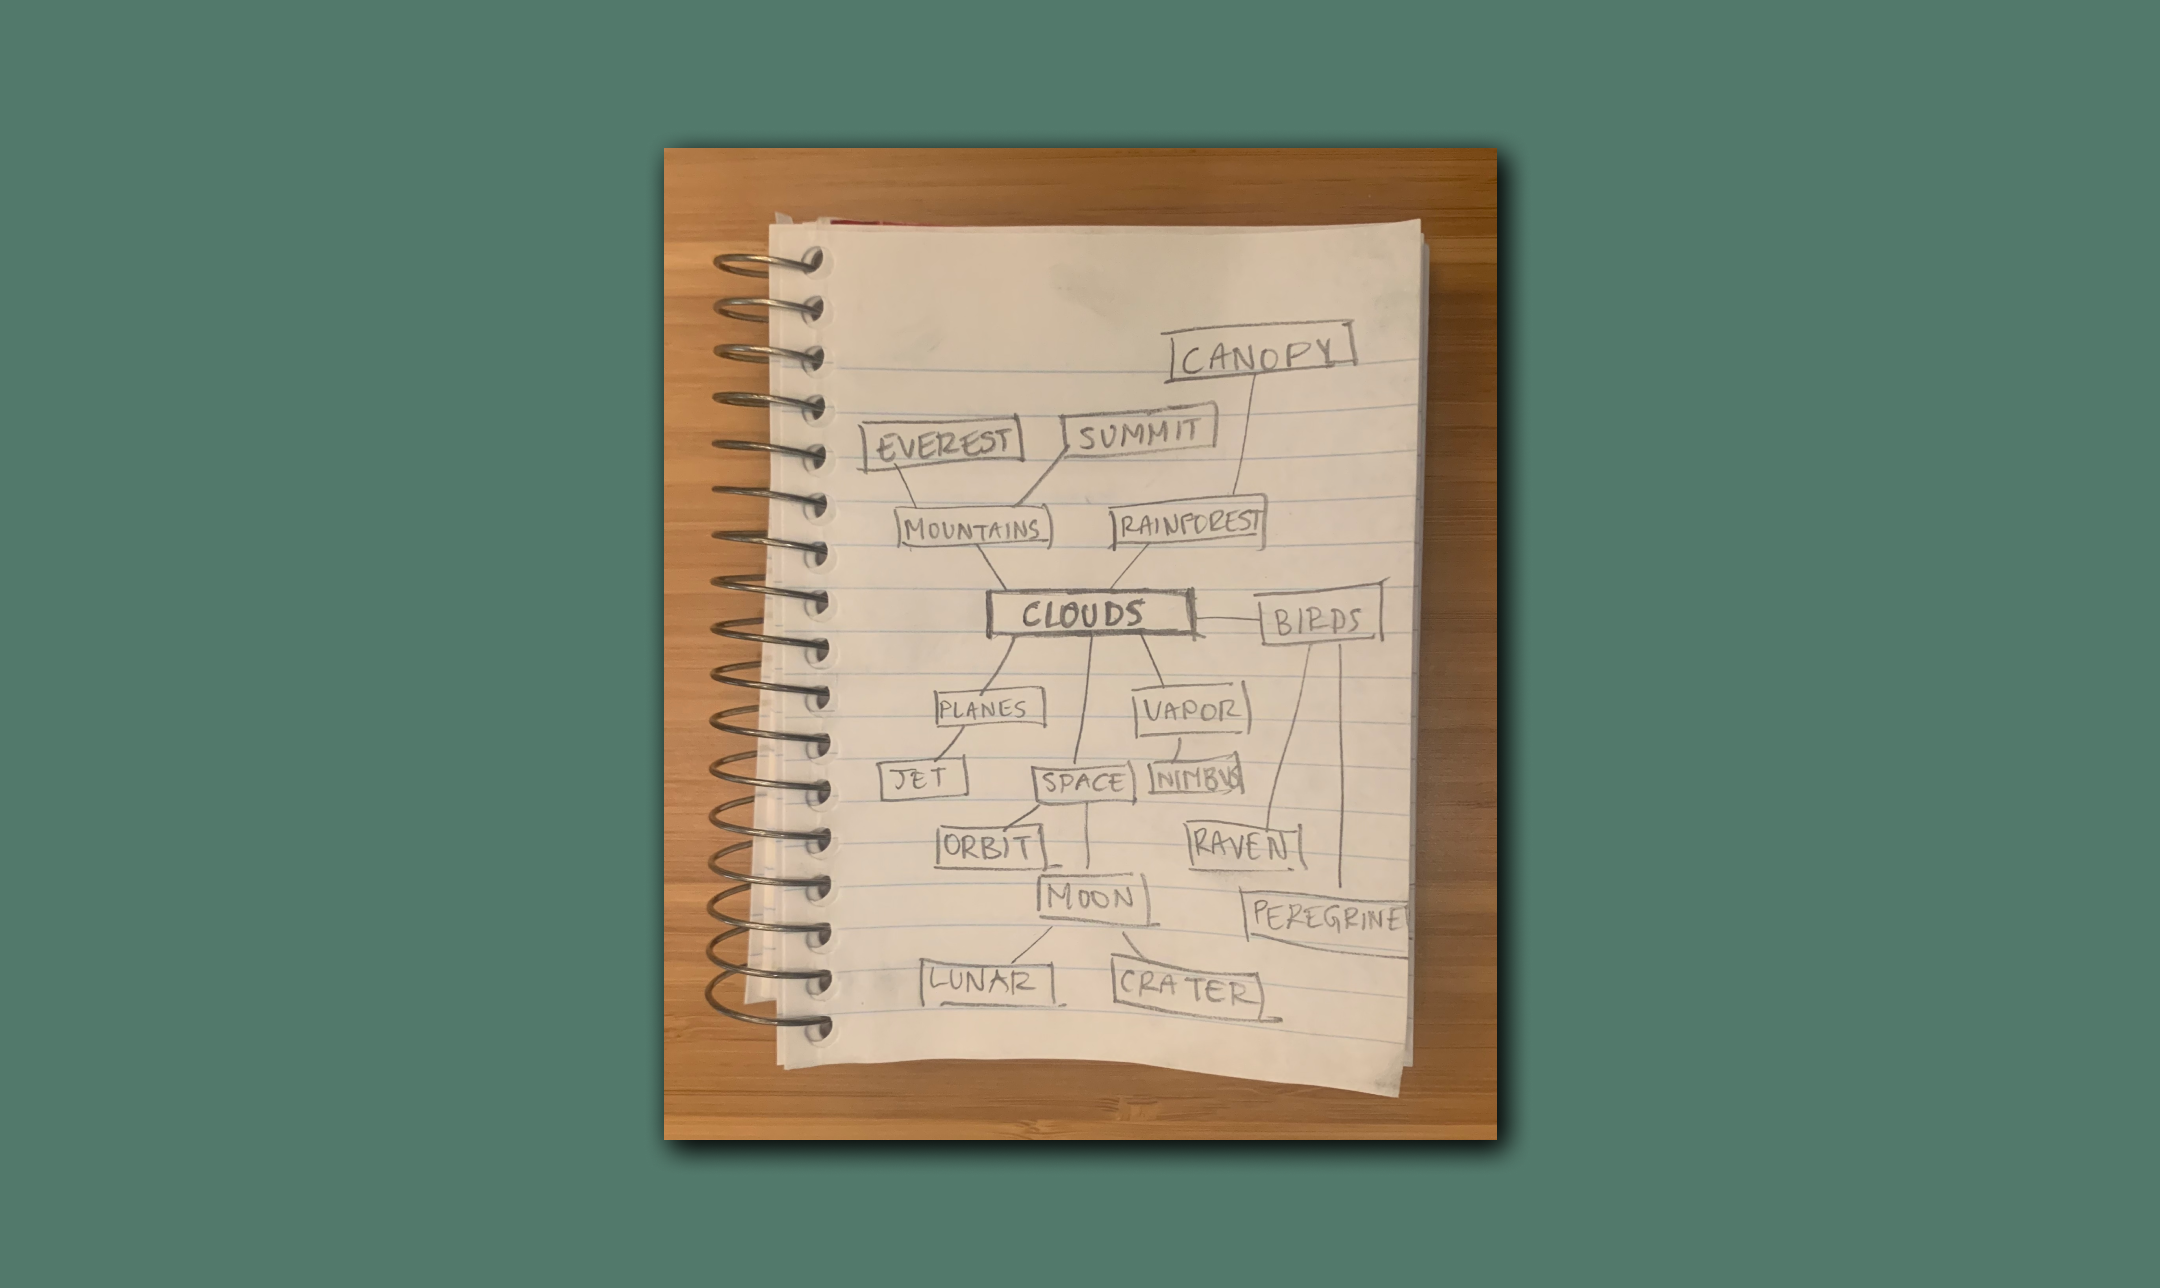 CANOPY
EVEREST
SUMMIT
MOUNTAINS
RAINFOREST
CLOUDS
BIRDS
PLANES
VAPOR
JET
SPACE
NIMBUS
ORBIT
RAVEN
MOON
PEREGRINE
LUNAR
CRATER